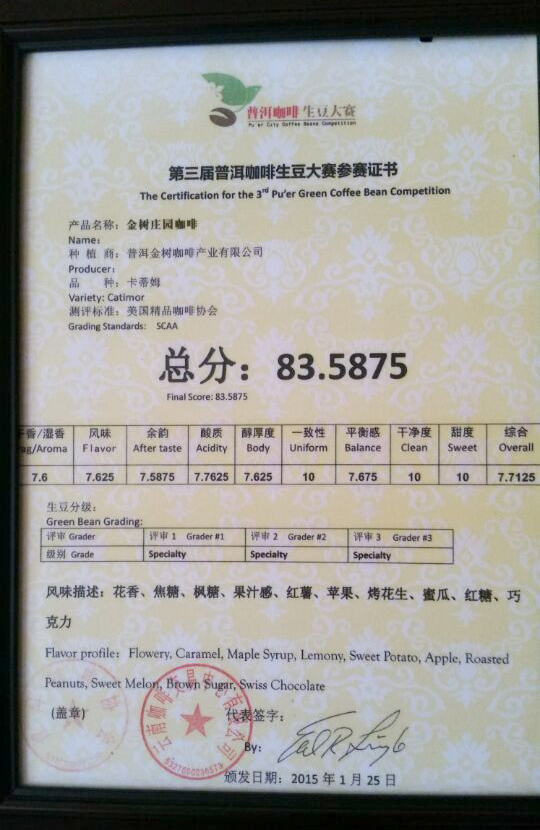 普洱咖啡生豆大赛
Pu'er City Coffee Beans Competition
第三届普洱咖啡生豆大赛参赛证书
The Certification for the 3rd Pu'er Green Coffee Bean Competition
产品名称：金树庄园咖啡
Name:
种 植 商：普洱金树咖啡产业有限公司
Producer:
品 种：卡蒂姆
Variety: Catimor
测评标准：美国精品咖啡协会
Grading Standards: SCAA
总分：83.5875
Final Score: 83.5875
香/湿香 风味 余韵 酸质 醇厚度 一致性 平衡感 干净度 甜度 综合
/Aroma Flavor After taste Acidity Body Uniform Balance Clean Sweet Overall
7.6 7.625 7.5875 7.7625 7.625 10 7.675 10 10 7.7125
生豆分级：
Green Bean Grading:
评审 Grader 评审 1 Grader #1 评审 2 Grader #2 评审 3 Grader #3
级别 Grade Specialty Specialty Specialty
风味描述：花香、焦糖、枫糖、果汁感、红薯、苹果、烤花生、蜜瓜、红糖、巧
克力
Flavor profile: Flowery, Caramel, Maple Syrup, Lemony, Sweet Potato, Apple, Roasted
Peanuts, Sweet Melon, Brown Sugar, Swiss Chocolate
(盖章)
代表签字：
By:
颁发日期：2015 年 1 月 25 日